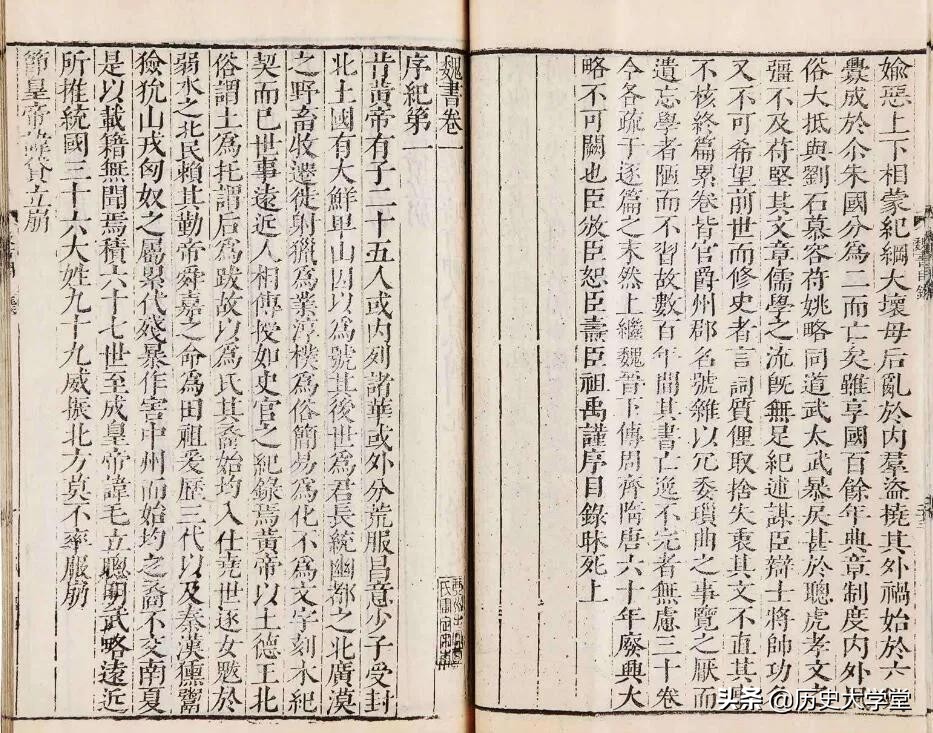 婾惡上下相蒙紀綱大壞母后亂於内羣盜撓其外禍始於六
釁成於尒朱國分為二而亡矣雖享國百餘年典章制度内外
俗大抵與劉石慕容苻姚略同道武太武暴戾甚於聰虎孝文
彊不及苻堅其文章儒學之流旣無足紀述謀臣辯士將帥功
又不可希望前世而修史者言詞質俚取捨失衷其文不直其
不核終篇累卷皆官爵州郡名號雜以冗委瑣曲之事覽之厭而
遺忘學者陋而不習故數百年間其書亡逸不完者無慮三十卷
今各疏于逐篇之末然上繼魏晉下傳周齊隋唐六十年廢興大
略不可闕也臣攽臣恕臣燾臣祖禹謹序目錄昧死上
魏書卷一
序紀第一
昔黃帝有子二十五人或内列諸華或外分荒服昌意少子受封
北土國有大鮮卑山因以為號其後世為君長統幽都之北廣漠
之野畜牧遷徙射獵為業淳樸為俗簡易為化不為文字刻木紀
契而已世事遠近人相傳授如史官之紀錄焉黃帝以土德王北
俗謂土為托謂后為跋故以為氏其裔始均入仕堯世逐女魃於
弱水之北民賴其勤帝舜嘉之命為田祖爰歷三代以及秦漢獯鬻
獫狁山戎匈奴之屬累代殘暴作害中州而始均之裔不交南夏
是以載籍無聞焉積六十七世至成皇帝諱毛立聰明武略遠近
所推統國三十六大姓九十九威振北方莫不率服崩
節皇帝諱貸立崩
头条 @历史大学堂